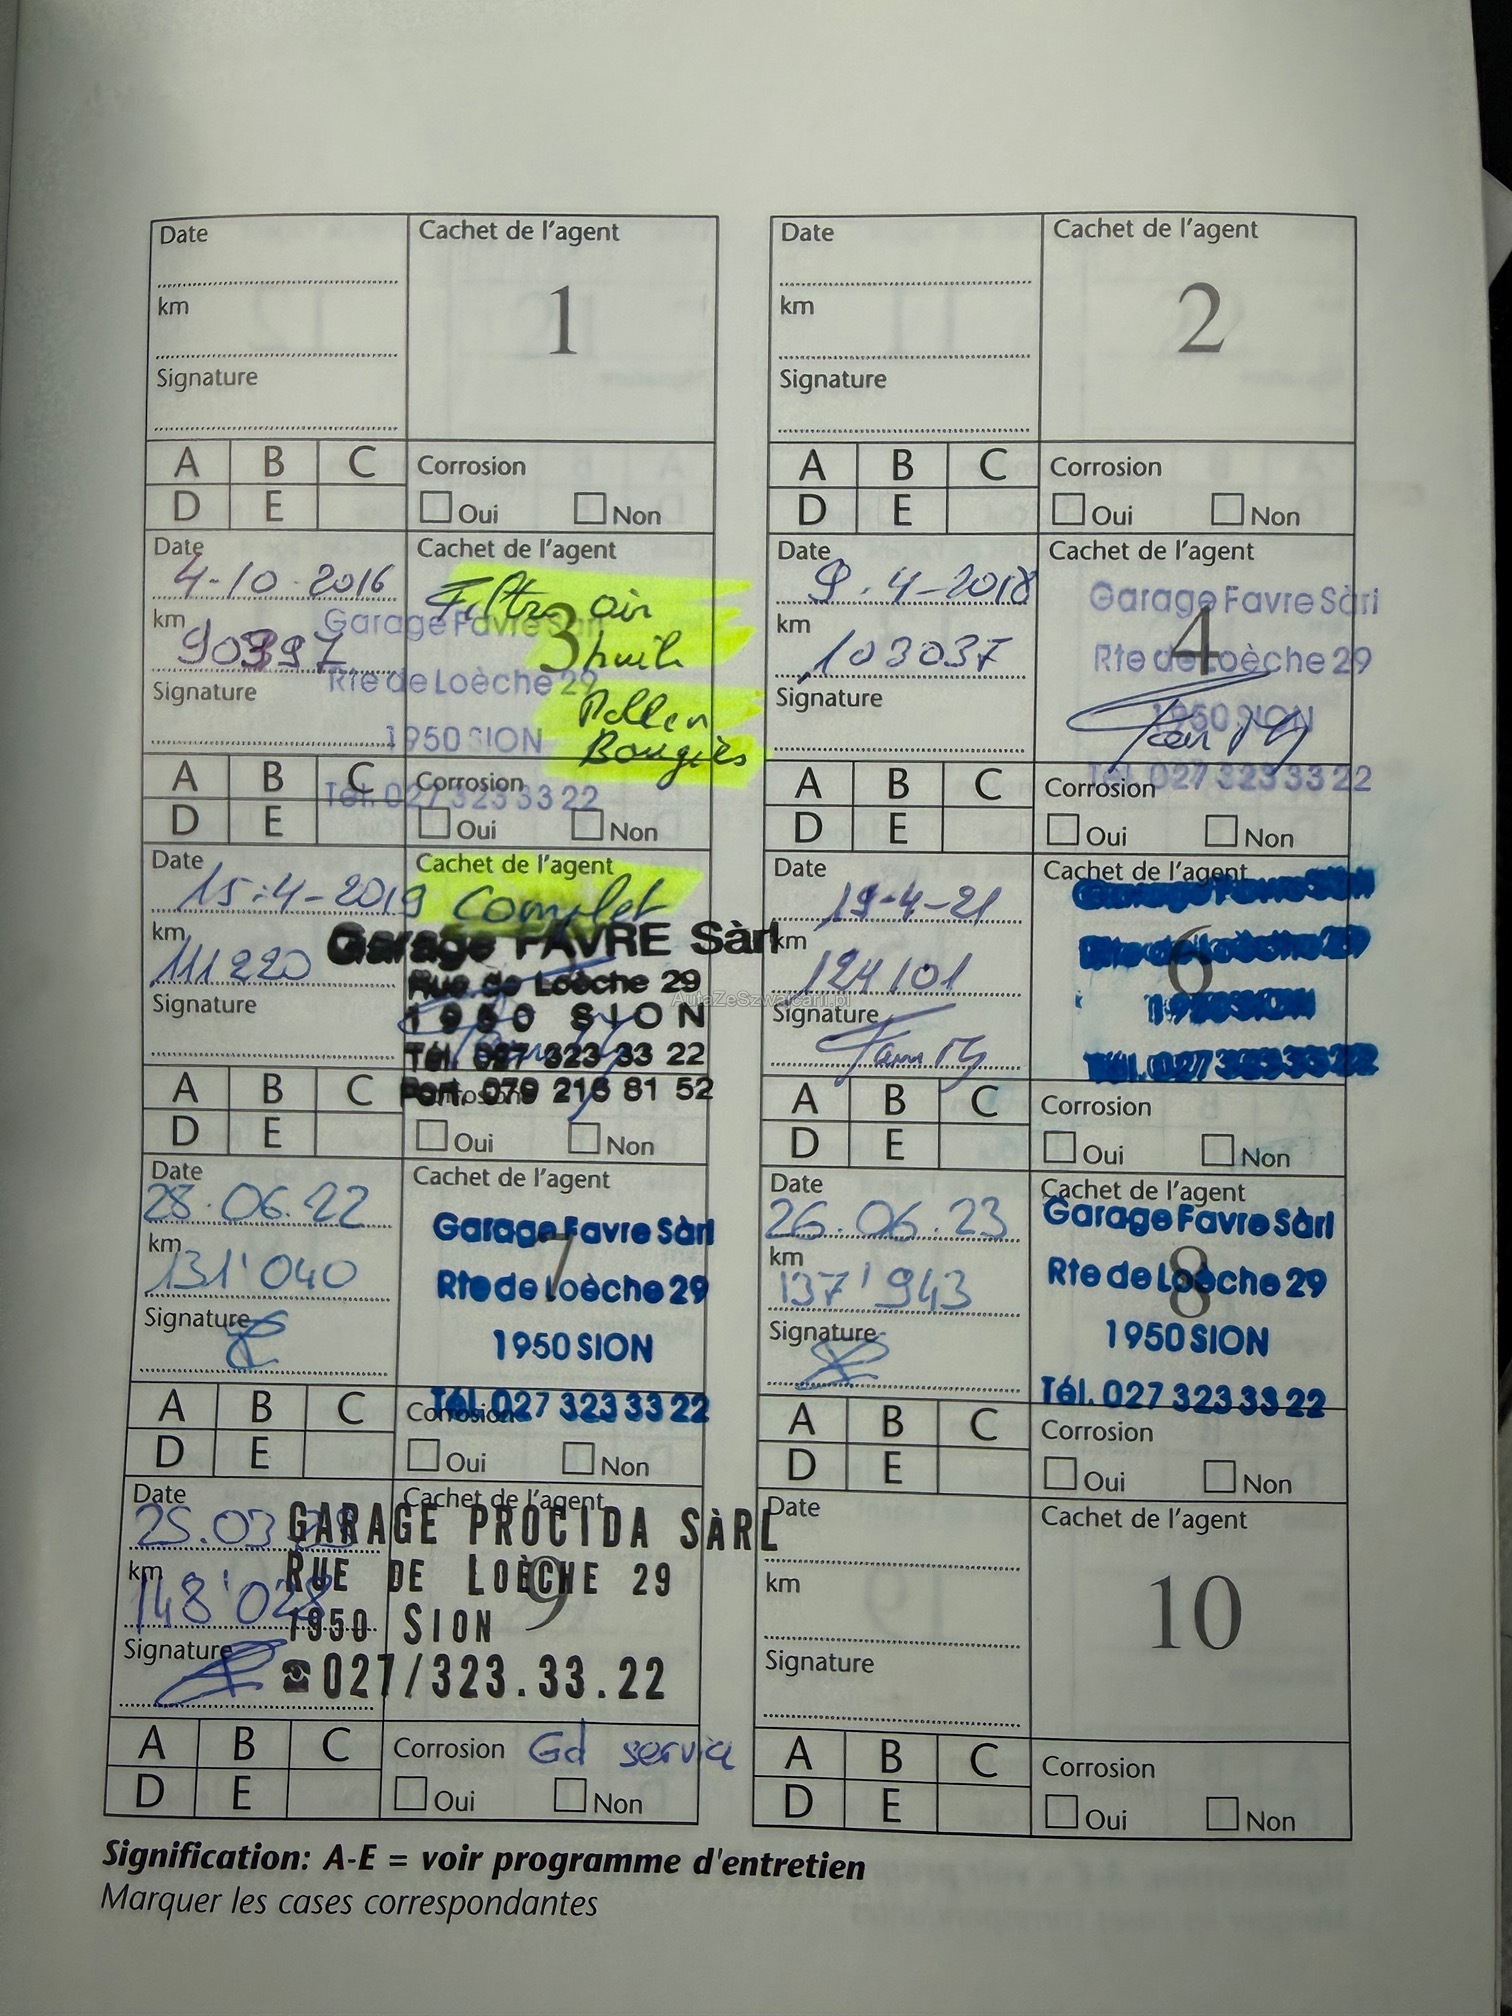 Date
Cachet de l'agent
km
1
Signature
A B C
Corrosion
D E
Oui Non
Date
Cachet de l'agent
km
2
Signature
A B C
Corrosion
D E
Oui Non
Date
Cachet de l'agent
4-10-2016
Filtre air
km
Garage Favre Sàrl
3
huile
Rte de Loèche 29
Signature
Pollen
1950 SION
Bougies
A B C
Corrosion
Tél. 027 323 33 22
D E
Oui Non
Date
Cachet de l'agent
9-4-2018
Garage Favre Sàrl
km
4
103037
Rte de Loèche 29
Signature
1950 SION
A B C
Tél. 027 323 33 22
Corrosion
D E
Oui Non
Date
Cachet de l'agent
15-4-2019
Complet
km
Garage FAVRE Sàrl
111220
Rue de Loèche 29
Signature
1950 SION
Tél. 027 323 33 22
A B C
Port. 079 216 81 52
Corrosion
D E
Oui Non
Date
Cachet de l'agent
19-4-21
Garage Favre Sàrl
km
6
Rte de Loèche 29
124101
AutaZeSzwajcarii.pl
Signature
1950 SION
Tél. 027 323 33 22
A B C
Corrosion
D E
Oui Non
Date
Cachet de l'agent
28.06.22
Garage Favre Sàrl
km
7
131'040
Rte de Loèche 29
Signature
1950 SION
A B C
Corrosion
Tél. 027 323 33 22
D E
Oui Non
Date
Cachet de l'agent
26.06.23
Garage Favre Sàrl
km
8
137'943
Rte de Loèche 29
Signature
1950 SION
Tél. 027 323 33 22
A B C
Corrosion
D E
Oui Non
Date
Cachet de l'agent
25.03
GARAGE PROCIDA SÀRL
km
9
148'028
RUE DE LOÈCHE 29
1950 SION
Signature
☎027/323.33.22
A B C
Corrosion
Gd service
D E
Oui Non
Date
Cachet de l'agent
km
10
Signature
A B C
Corrosion
D E
Oui Non
Signification: A-E = voir programme d'entretien
Marquer les cases correspondantes